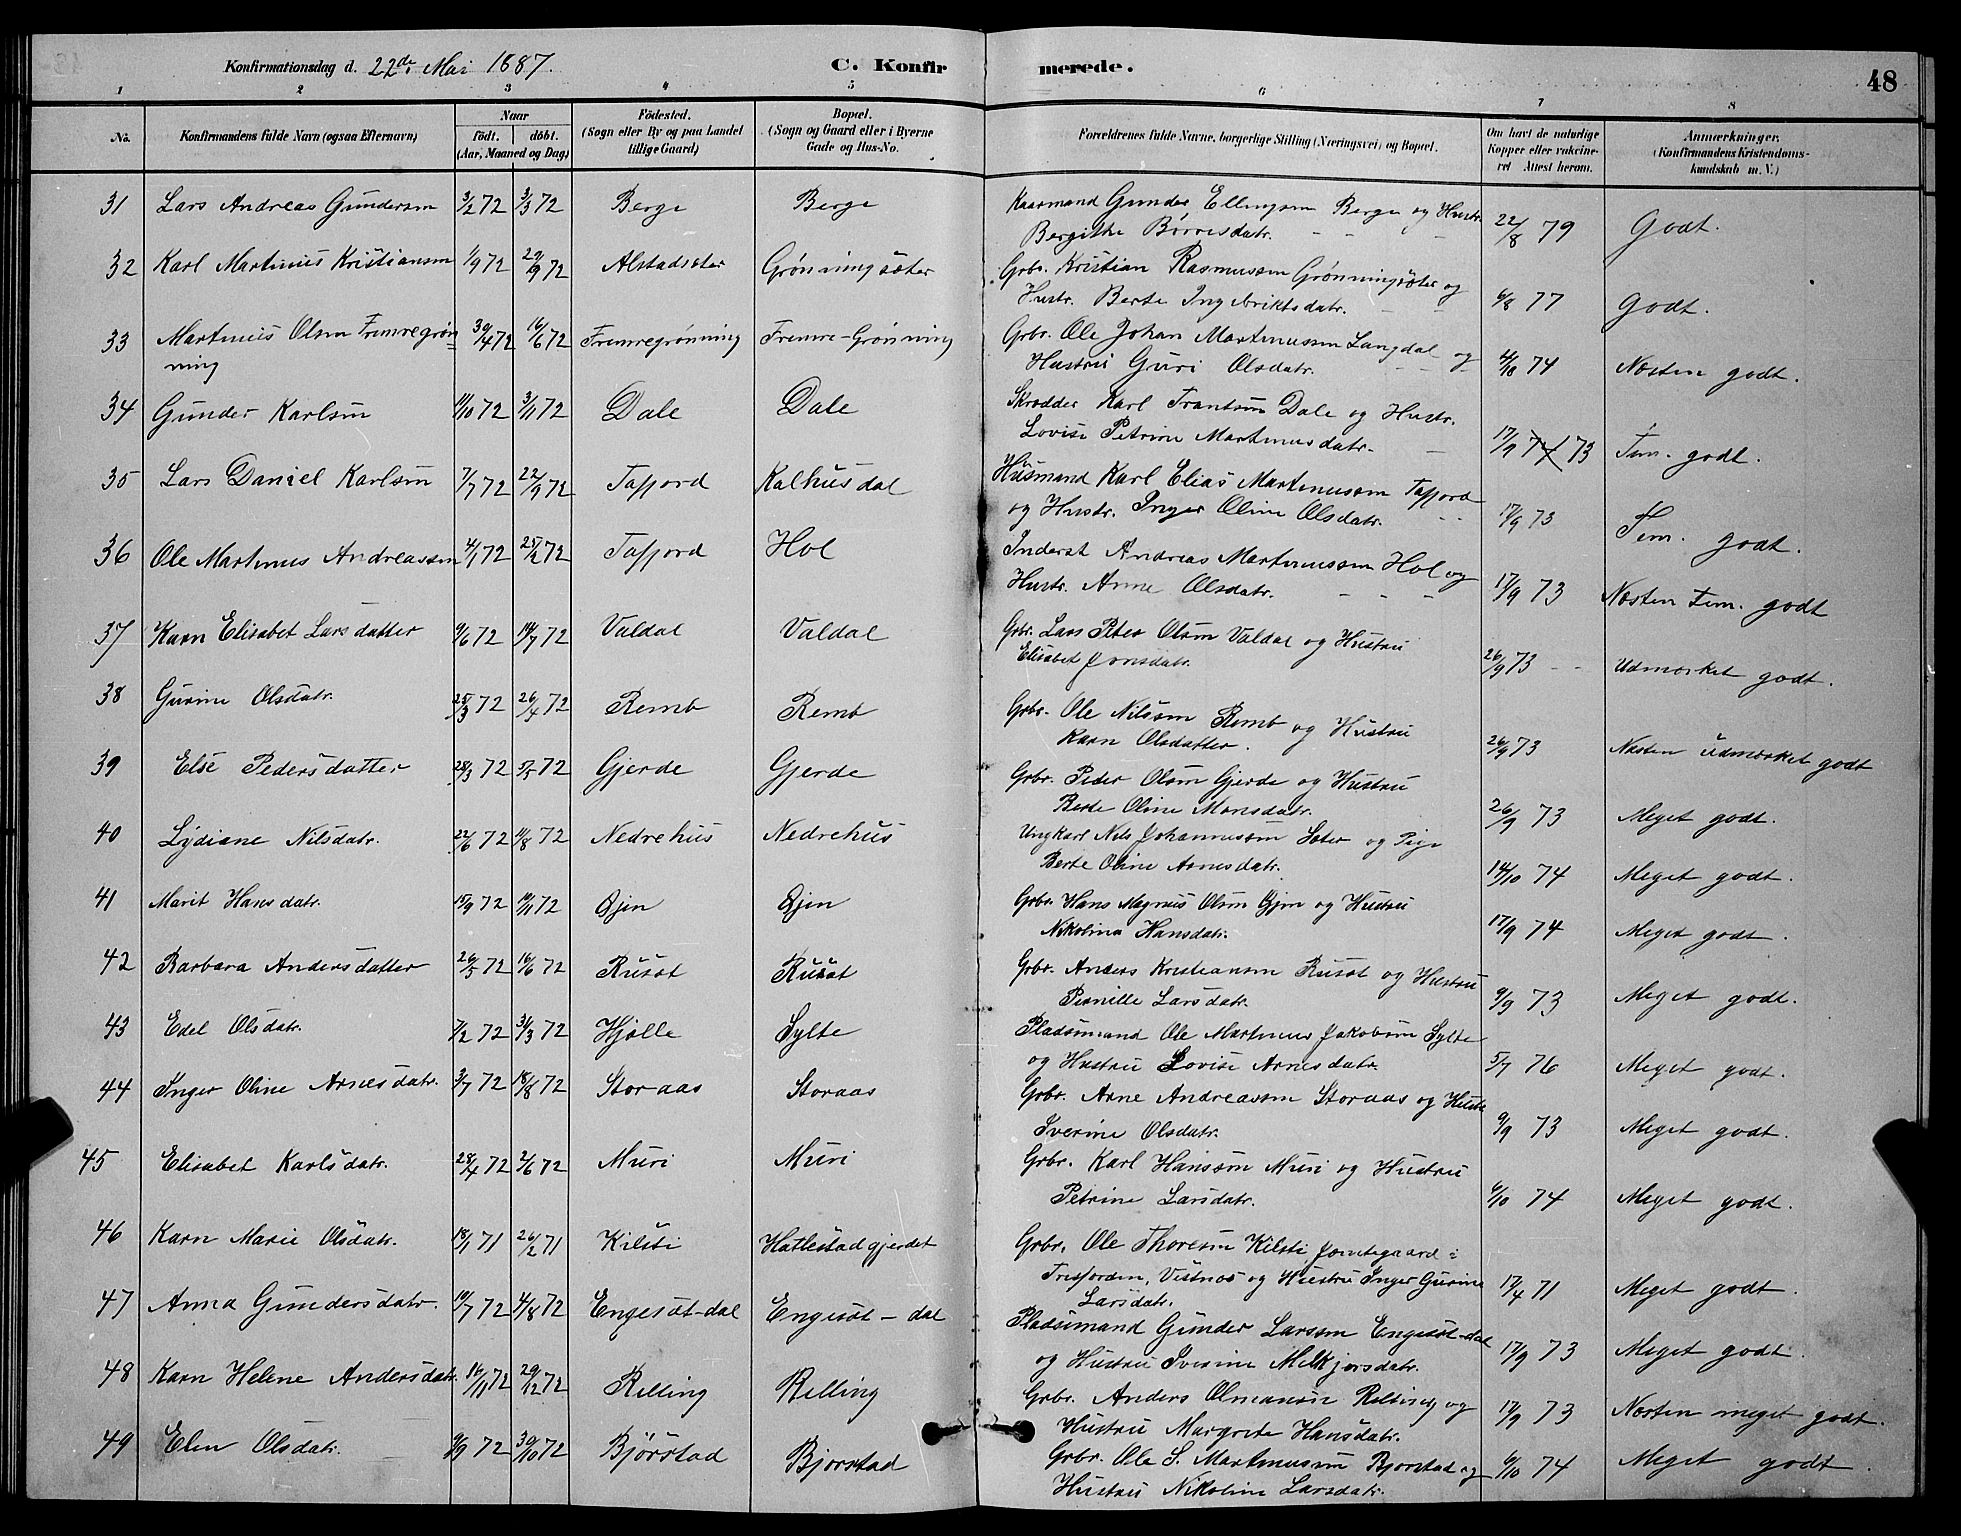 Konfirmationsdag d. 22de Mai 1887. C. Konfirmerede. 48
1 2 3 4 5 6 7 8
No. Konfirmandens fulde Navn (ogsaa Efternavn) Naar födt. döbt. (Aar, Maaned og Dag) Födested. (Sogn eller By og paa Landet tillige Gaard) Bopæl. (Sogn og Gaard eller i Byerne Gade og Hus-No. Forældrenes fulde Navne, borgerlige Stilling (Næringsvei) og Bopæl. Om havt de naturlige Kopper eller vakcineret. Attest herom. Anmærkninger. (Konfirmandens Kristendomskundskab m. V.)
31 Lars Andreas Gundersen 3/2 72 3/3 72 Berge Berge Kaarmand Gunder Ellingsen Berge og Hustr.
Bergithe Børresdatr. - - - 22/8 79 Godt.
32 Karl Martinus Kristiansen 1/9 72 29/9 72 Alstadsæter Grønningsæter Grbr. Kristian Rasmussen Grønningsæter og
Hustr. Berte Ingebriktsdatr. - - 6/8 77 Godt.
33 Martinus Olsen Fremregrøn= 30/4 72 16/6 72 Fremregrønning Fremre-Grønning Grbr. Ole Johan Martinussen Langdal og
ning Hustru Guri Olsdatr. - - - 4/10 74 Næsten godt.
34 Gunder Karlsen 11/10 72 3/11 72 Dale Dale Skrædder Karl Frantsen Dale og Hustr.
Lovise Petrine Martinusdatr. - 17/9 73 Tem. godt.
35 Lars Daniel Karlsen 7/7 72 22/9 72 Tafjord Kalhusdal Husmand Karl Elias Martinussen Tafjord
og Hustr. Inger Oline Olsdatr. - - 17/9 73 Tem. godt.
36 Ole Martinus Andreassen 4/1 72 25/2 72 Tafjord Hol Inderst Andreas Martinussen Hol og
Hustr. Anne Olsdatr. - - - 17/9 73 Næsten tem. godt
37 Karn Elisabet Larsdatter 9/6 72 14/7 72 Valdal Valdal Grbr. Lars Peter Olsen Valdal og Hustru
Elisabet Jonsdatr. 26/9 73 - - Udmærket godt.
38 Gurine Olsdatr. 25/3 72 26/4 72 Remb Remb Grbr. Ole Nilssen Remb og Hustru
Karn Olsdatter. 26/9 73 Næsten udmærket godt
39 Else Pedersdatter 28/3 72 5/5 72 Gjerde Gjerde Grbr. Peder Olsen Gjerde og Hustru
Berte Oline Monsdatr. 26/9 73 Meget godt.
40 Lydiane Nilsdatr. 22/6 72 11/8 72 Nedrehus Nedrehus Ungkarl Nils Johannessen Sæter og Pige
Berte Oline Arnesdatr. 14/10 74 Meget godt.
41 Marit Hansdatr. 15/9 72 10/11 72 Øjen Øjen Grbr. Hans Magnus Olsen Øjen og Hustru
Nikolina Hansdatr. 17/9 74 Meget godt.
42 Barbara Andersdatter 26/5 72 16/6 72 Rusøt Rusøt Grbr. Anders Kristiansen Rusøt og Hustru
Pernille Larsdatr. 9/9 73 Meget godt.
43 Edel Olsdatr. 7/2 72 31/3 72 Hjølle Sylte Pladsemand Ole Martinus Jakobsen Sylte
og Hustru Lovise Arnesdatr. 5/7 76 Meget godt.
44 Inger Oline Arnesdatr. 3/7 72 18/8 72 Storaas Storaas Grbr. Arne Andreassen Storaas og Hustr
Iverine Olsdatr. 9/9 73 Meget godt.
45 Elisabet Karlsdatr. 28/4 72 2/6 72 Muri Muri Grbr. Karl Hanssøn Muri og Hustru
Petrine Larsdatr. 6/10 74 Meget godt.
46 Karn Marie Olsdatr. 18/1 71 26/2 71 Kilsti Hatlestadgjerdet Grbr. Ole Thoresen Kilsti i
Tresfjorden, Vestnæs og Hustru Inger Gurine
Larsdatr. 17/4 71 Meget godt.
47 Anna Gundersdatr. 10/7 72 4/8 72 Engesøt-dal Engesøt-dal Pladsemand Gunder Larssen Engesøt-dal
og Hustru Iverine Melkjorsdatr. 17/9 73 Meget godt.
48 Karn Helene Andersdatr. 16/11 72 29/12 72 Relling Relling Grbr. Anders Olmansen Relling og
Hustru Margrete Hansdatr. 17/9 73 Næsten meget godt.
49 Elen Olsdatr. 9/9 72 30/10 72 Bjørstad Bjorstad Grbr. Ole S. Martinussen Bjorstad og
Hustru Nikoline Larsdatr. 6/10 74 Meget godt.